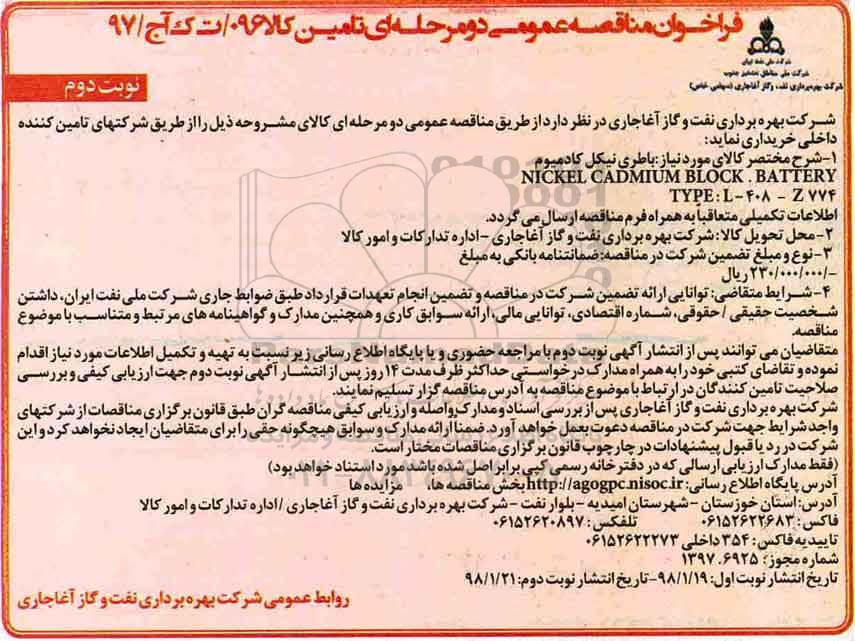 فراخوان مناقصه عمومی دو مرحله‌ای تامین کالا ۰۹۶/ت ک آج/۹۷
شرکت ملی نفت ایران
شرکت ملی مناطق نفتخیز جنوب
شرکت بهره‌برداری نفت و گاز آغاجاری (سهامی خاص)
نوبت دوم
شرکت بهره برداری نفت و گاز آغاجاری در نظر دارد از طریق مناقصه عمومی دو مرحله ای کالای مشروحه ذیل را از طریق شرکتهای تامین کننده
داخلی خریداری نماید:
۱-شرح مختصر کالای مورد نیاز: باطری نیکل کادمیوم
NICKEL CADMIUM BLOCK . BATTERY
TYPE : L - ۴۰۸ - Z ۷۷۴
اطلاعات تکمیلی متعاقبا به همراه فرم مناقصه ارسال می گردد.
۲-محل تحویل کالا: شرکت بهره برداری نفت و گاز آغاجاری -اداره تدارکات و امور کالا
۳-نوع و مبلغ تضمین شرکت در مناقصه: ضمانتنامه بانکی به مبلغ
۲۳۰/۰۰۰/۰۰۰/- ریال
۴-شرایط متقاضی: توانایی ارائه تضمین شرکت در مناقصه و تضمین انجام تعهدات قرارداد طبق ضوابط جاری شرکت ملی نفت ایران، داشتن
شخصیت حقیقی / حقوقی، شماره اقتصادی، توانایی مالی، ارائه سوابق کاری و همچنین مدارک و گواهینامه های مرتبط و متناسب با موضوع
مناقصه.
متقاضیان می توانند پس از انتشار آگهی نوبت دوم با مراجعه حضوری و یا پایگاه اطلاع رسانی زیر نسبت به تهیه و تکمیل اطلاعات مورد نیاز اقدام
نموده و تقاضای کتبی خود را به همراه مدارک درخواستی حداکثر ظرف مدت ۱۴ روز پس از انتشار آگهی نوبت دوم جهت ارزیابی کیفی و بررسی
صلاحیت تامین کنندگان در ارتباط با موضوع مناقصه به آدرس مناقصه گزار تسلیم نمایند.
شرکت بهره برداری نفت و گاز آغاجاری پس از بررسی اسناد و مدارک واصله و ارزیابی کیفی مناقصه گران طبق قانون برگزاری مناقصات از شرکتهای
واجد شرایط جهت شرکت در مناقصه دعوت بعمل خواهد آورد. ضمنا ارائه مدارک و سوابق هیچگونه حقی را برای متقاضیان ایجاد نخواهد کرد و این
شرکت در رد یا قبول پیشنهادات در چارچوب قانون برگزاری مناقصات مختار است.
(فقط مدارک ارزیابی ارسالی که در دفتر خانه رسمی کپی برابر اصل شده باشد مورد استناد خواهد بود)
آدرس پایگاه اطلاع رسانی: http://agogpc.nisoc.ir بخش مناقصه ها، مزایده ها
آدرس: استان خوزستان -شهرستان امیدیه -بلوار نفت -شرکت بهره برداری نفت و گاز آغاجاری / اداره تدارکات و امور کالا
فاکس: ۰۶۱۵۲۶۲۲۶۸۳ تلفکس: ۰۶۱۵۲۶۲۰۸۹۷
تاییدیه فاکس: ۳۵۴ داخلی ۰۶۱۵۲۶۲۲۲۷۳
شماره مجوز: ۱۳۹۷.۶۹۲۵
تاریخ انتشار نوبت اول: ۹۸/۱/۱۹-تاریخ انتشار نوبت دوم: ۹۸/۱/۲۱
روابط عمومی شرکت بهره برداری نفت و گاز آغاجاری